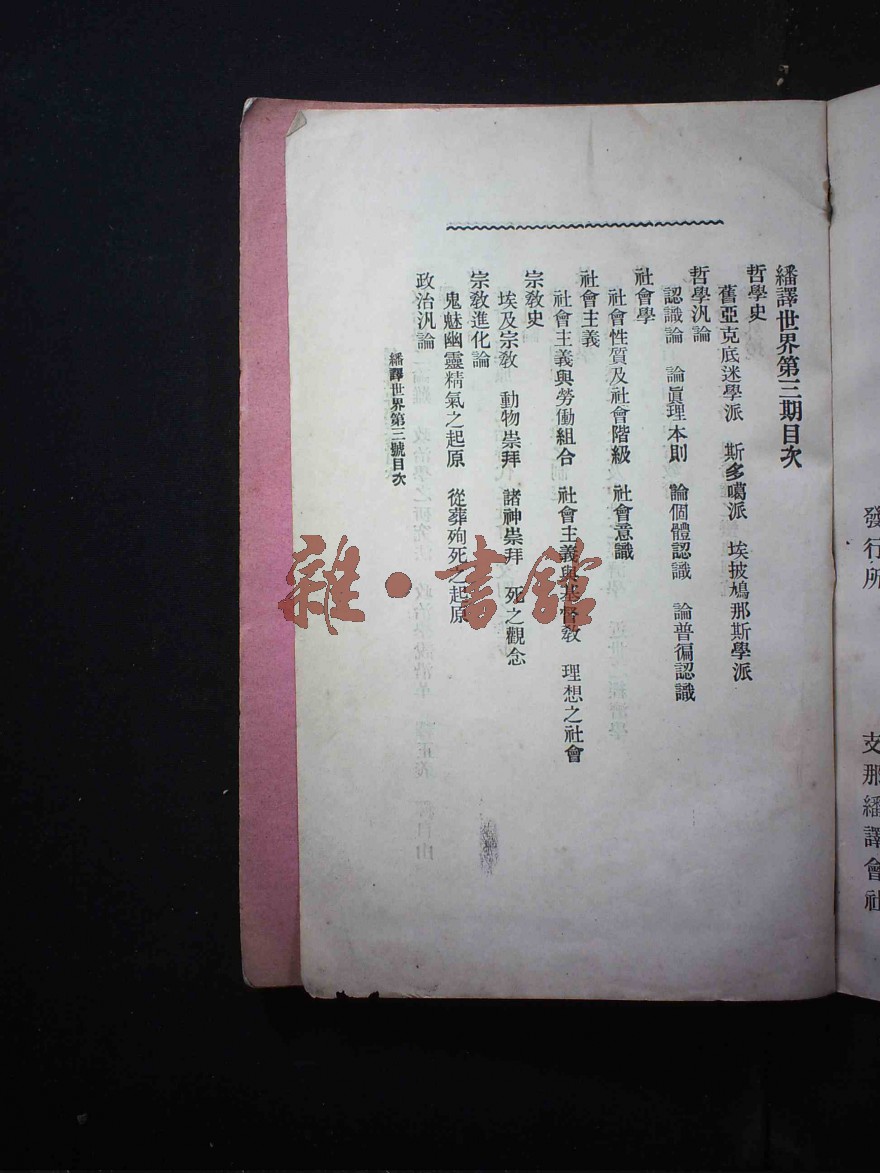 發行所 支那繙譯會社
繙譯世界第三期目次
哲學史
舊亞克底迷學派 斯多噶派 埃披鳩那斯學派
哲學汎論
認識論 論眞理本則 論個體認識 論普徧認識
社會學
社會性質及社會階級 社會意識
社會主義
社會主義與勞働組合 社會主義與基督敎 理想之社會
宗敎史
埃及宗敎 動物崇拜 諸神崇拜 死之觀念
宗敎進化論
鬼魅幽靈精氣之起原 從葬殉死之起原
政治汎論
繙譯世界第三號目次
雜·書館